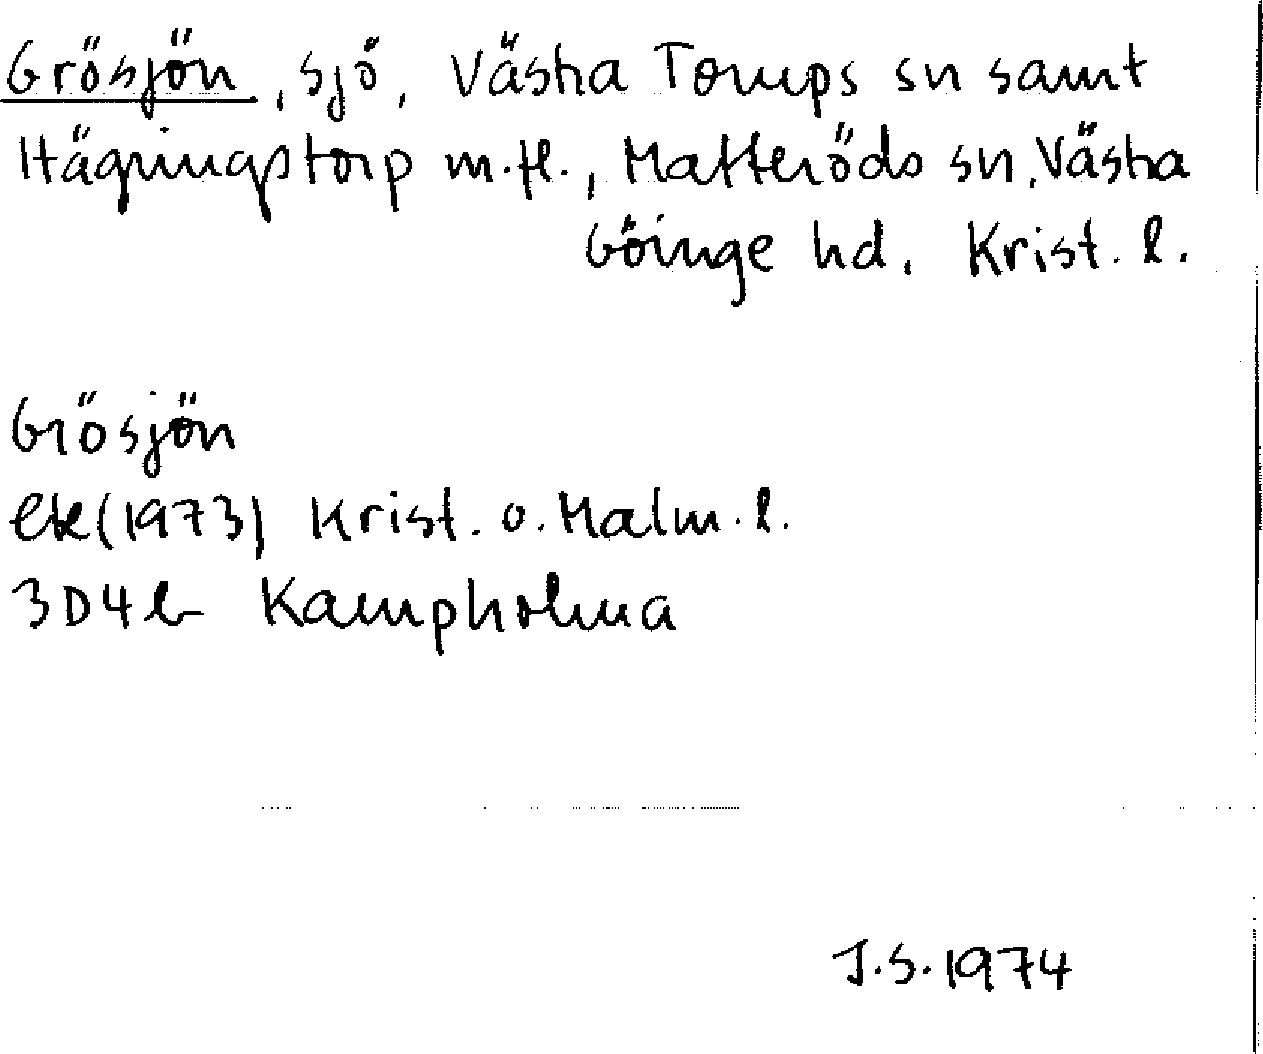 Grösjön, sjö, Västra Torups sn samt
Hägningstorp m.fl., Matteröds sn, Västra
Göinge hd, Krist. l.
Grösjön
ek(1973) Krist. o. Malm. l.
3D4b Kampholma
J.S. 1974